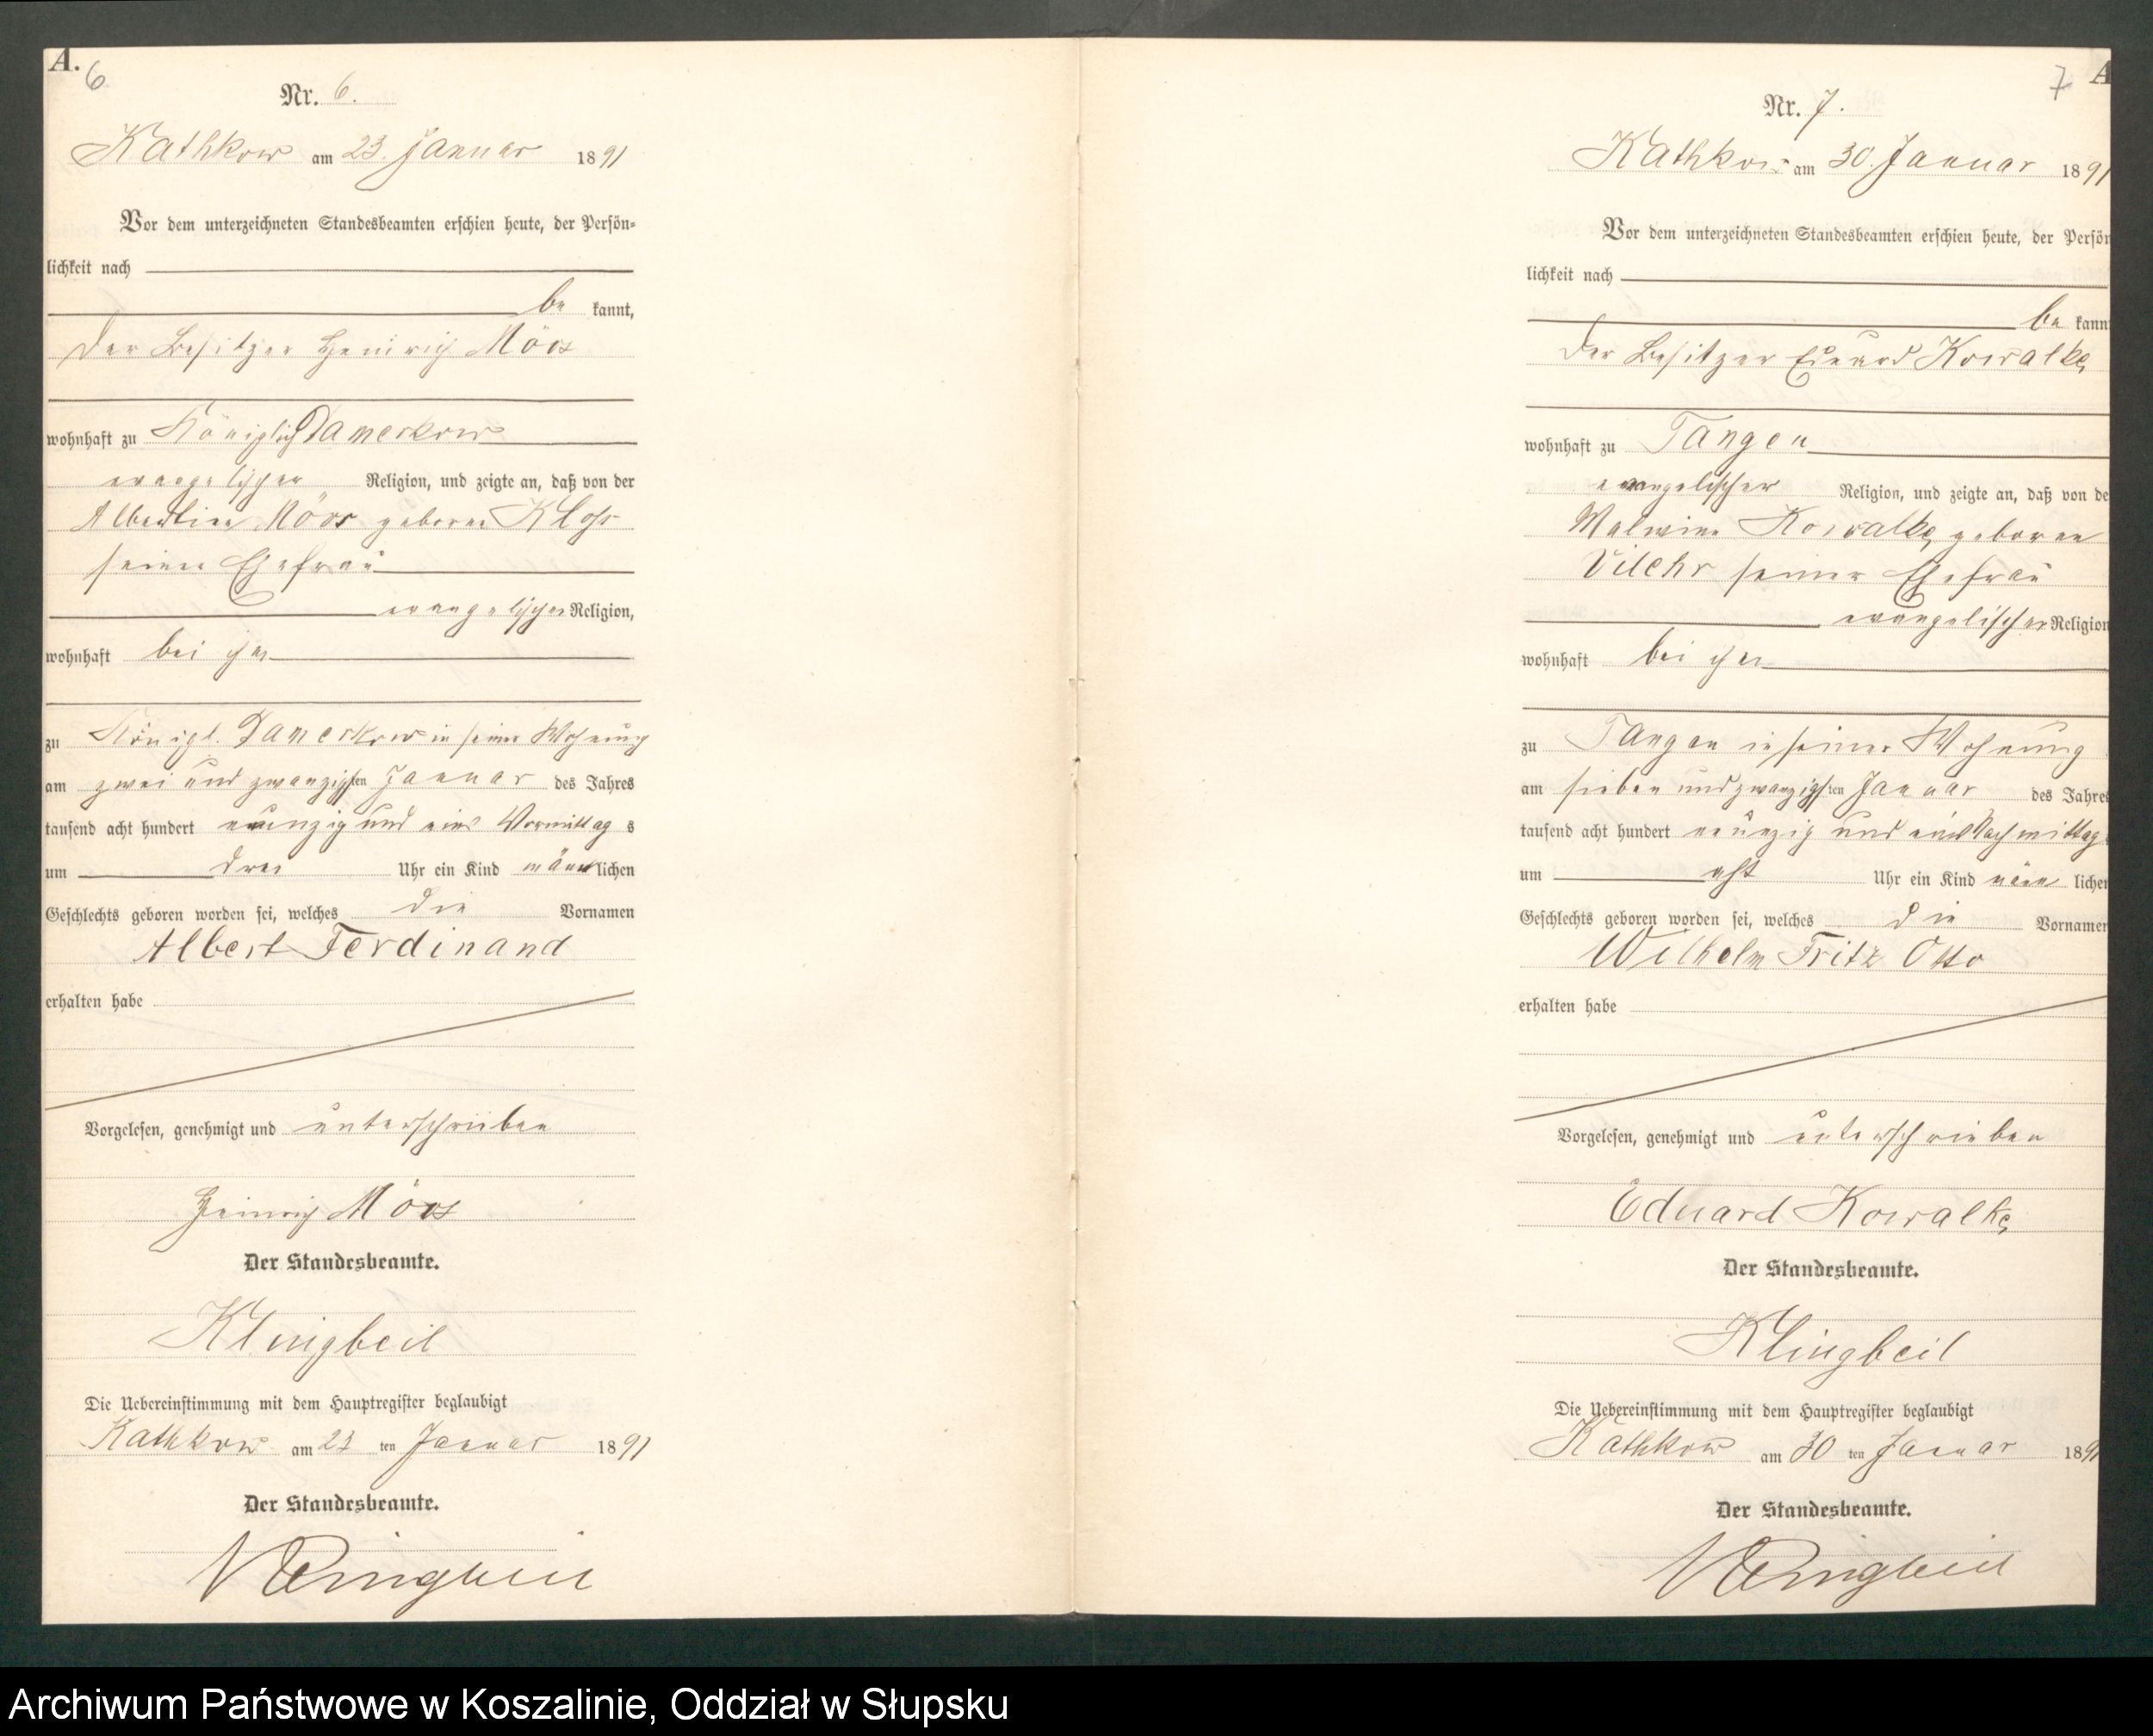 A.
6
Nr. 6.
Kathkow am 23. Januar 1891
Vor dem unterzeichneten Standesbeamten erschien heute, der Persön-
lichkeit nach
be kannt,
der Besitzer Heinrich Möos
wohnhaft zu Königlich Damerkow
evangelischer Religion, und zeigte an, daß von der
Albertine Möos geborene Kloss
seiner Ehefrau
evangelischer Religion,
wohnhaft bei ihm
zu Königl. Damerkow in seiner Wohnung
am zwei und zwanzigsten Januar des Jahres
tausend acht hundert neunzig und eins Vormittag s
um drei Uhr ein Kind männlichen
Geschlechts geboren worden sei, welches die Vornamen
Albert Ferdinand
erhalten habe
Vorgelesen, genehmigt und unterschrieben
Heinrich Möos
Der Standesbeamte.
Klingbeil
Die Uebereinstimmung mit dem Hauptregister beglaubigt
Kathkow am 23 ten Januar 1891
Der Standesbeamte.
Klingbeil
7
A
Nr. 7.
Kathkow am 30. Januar 1891
Vor dem unterzeichneten Standesbeamten erschien heute, der Persön
lichkeit nach
be kann
der Besitzer Eduard Kowalke
wohnhaft zu Tangen
evangelischer Religion, und zeigte an, daß von de
Malwine Kowalke geborene
seiner Ehefrau
evangelischer Religion
wohnhaft bei ihm
zu Tangen in seiner Wohnung
am sieben und zwanzigsten Januar des Jahres
tausend acht hundert neunzig und eins Nachmittag
um acht Uhr ein Kind männ licher
Geschlechts geboren worden sei, welches die Vornamen
Wilhelm Fritz Otto
erhalten habe
Vorgelesen, genehmigt und unterschrieben
Eduard Kowalke
Der Standesbeamte.
Klingbeil
Die Uebereinstimmung mit dem Hauptregister beglaubigt
Kathkow am 30 ten Januar 1891
Der Standesbeamte.
Klingbeil
Archiwum Państwowe w Koszalinie, Oddział w Słupsku